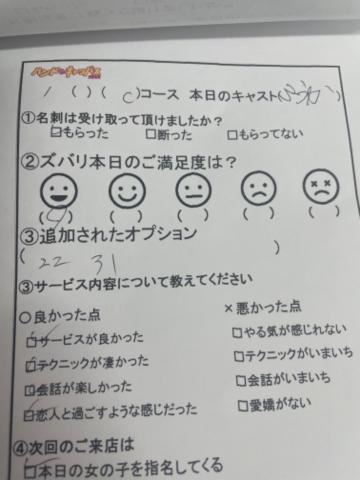 ハンドdeキャンパス
/ ( ) ( c)コース 本日のキャスト( )
①名刺は受け取って頂けましたか？
☑もらった □断った □もらってない
②ズバリ本日のご満足度は？
( ) ( ) ( ) ( ) ( )
③追加されたオプション
( 22 31 )
③サービス内容について教えてください
○良かった点 ×悪かった点
☑サービスが良かった □やる気が感じれない
☑テクニックが凄かった □テクニックがいまいち
☑会話が楽しかった □会話がいまいち
☑恋人と過ごすような感じだった □愛嬌がない
④次回のご来店は
☑本日の女の子を指名してくる